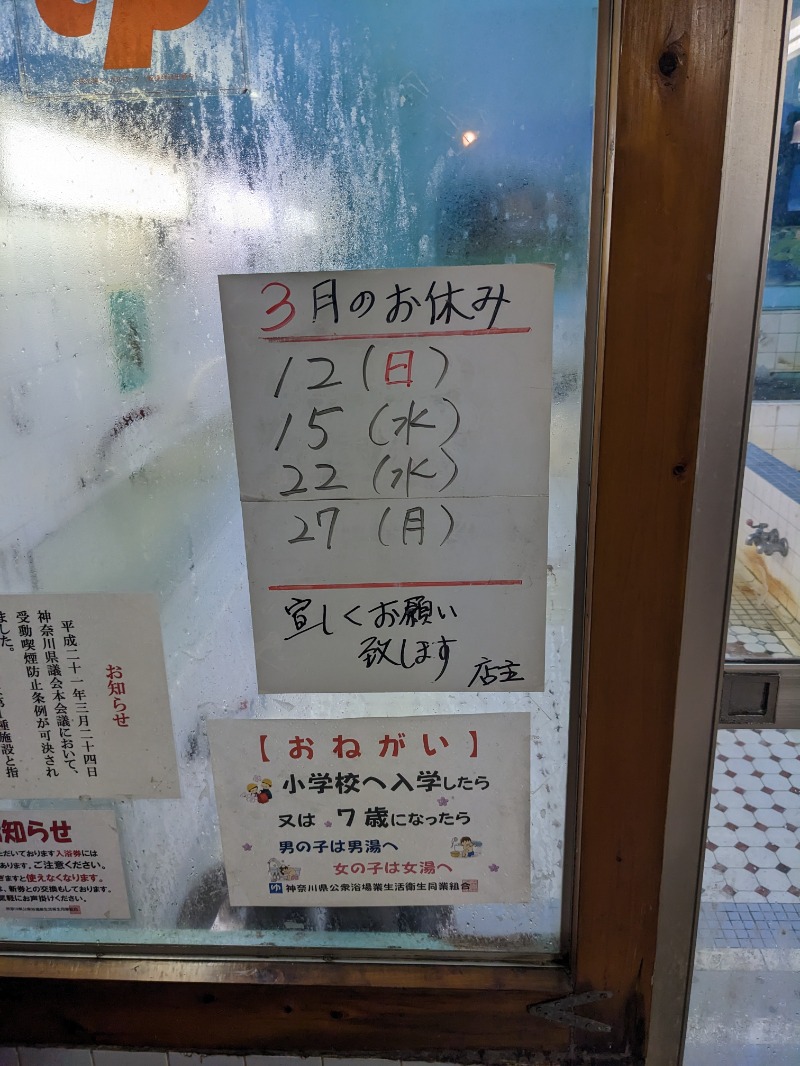 3月のお休み
12(日)
15(水)
22(水)
27(月)
宜しくお願い
致します
店主
お知らせ
平成二十一年三月二十四日
神奈川県議会本会議において、
受動喫煙防止条例が可決され
ました。
種施設と指
【おねがい】
小学校へ入学したら
又は7歳になったら
男の子は男湯へ
女の子は女湯へ
ゆ 神奈川県公衆浴場業生活衛生同業組合
知らせ
ただいております入浴券には
あります。ご注意ください。
ぎますと使えなくなります。
は、新券との交換もしております。
気軽にお声掛けください。